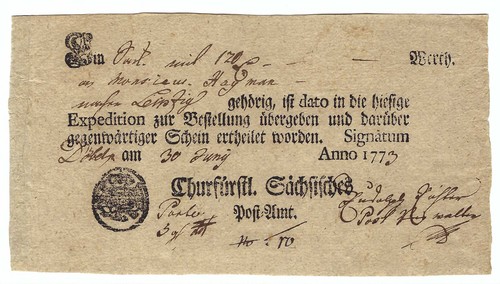 Ein Pack. mit 120 — — Werth.
an Monsieur Hayman —
nacher Leipzig gehörig, ist dato in die hiesige
Expedition zur Bestellung übergeben und darüber
gegenwärtiger Schein ertheilet worden. Signatum
Döbeln am 30 Juny Anno 1773
Churfürstl. Sächsisches
Post-Amt.
Porto
3 gl
No. 10
Post Verwalter